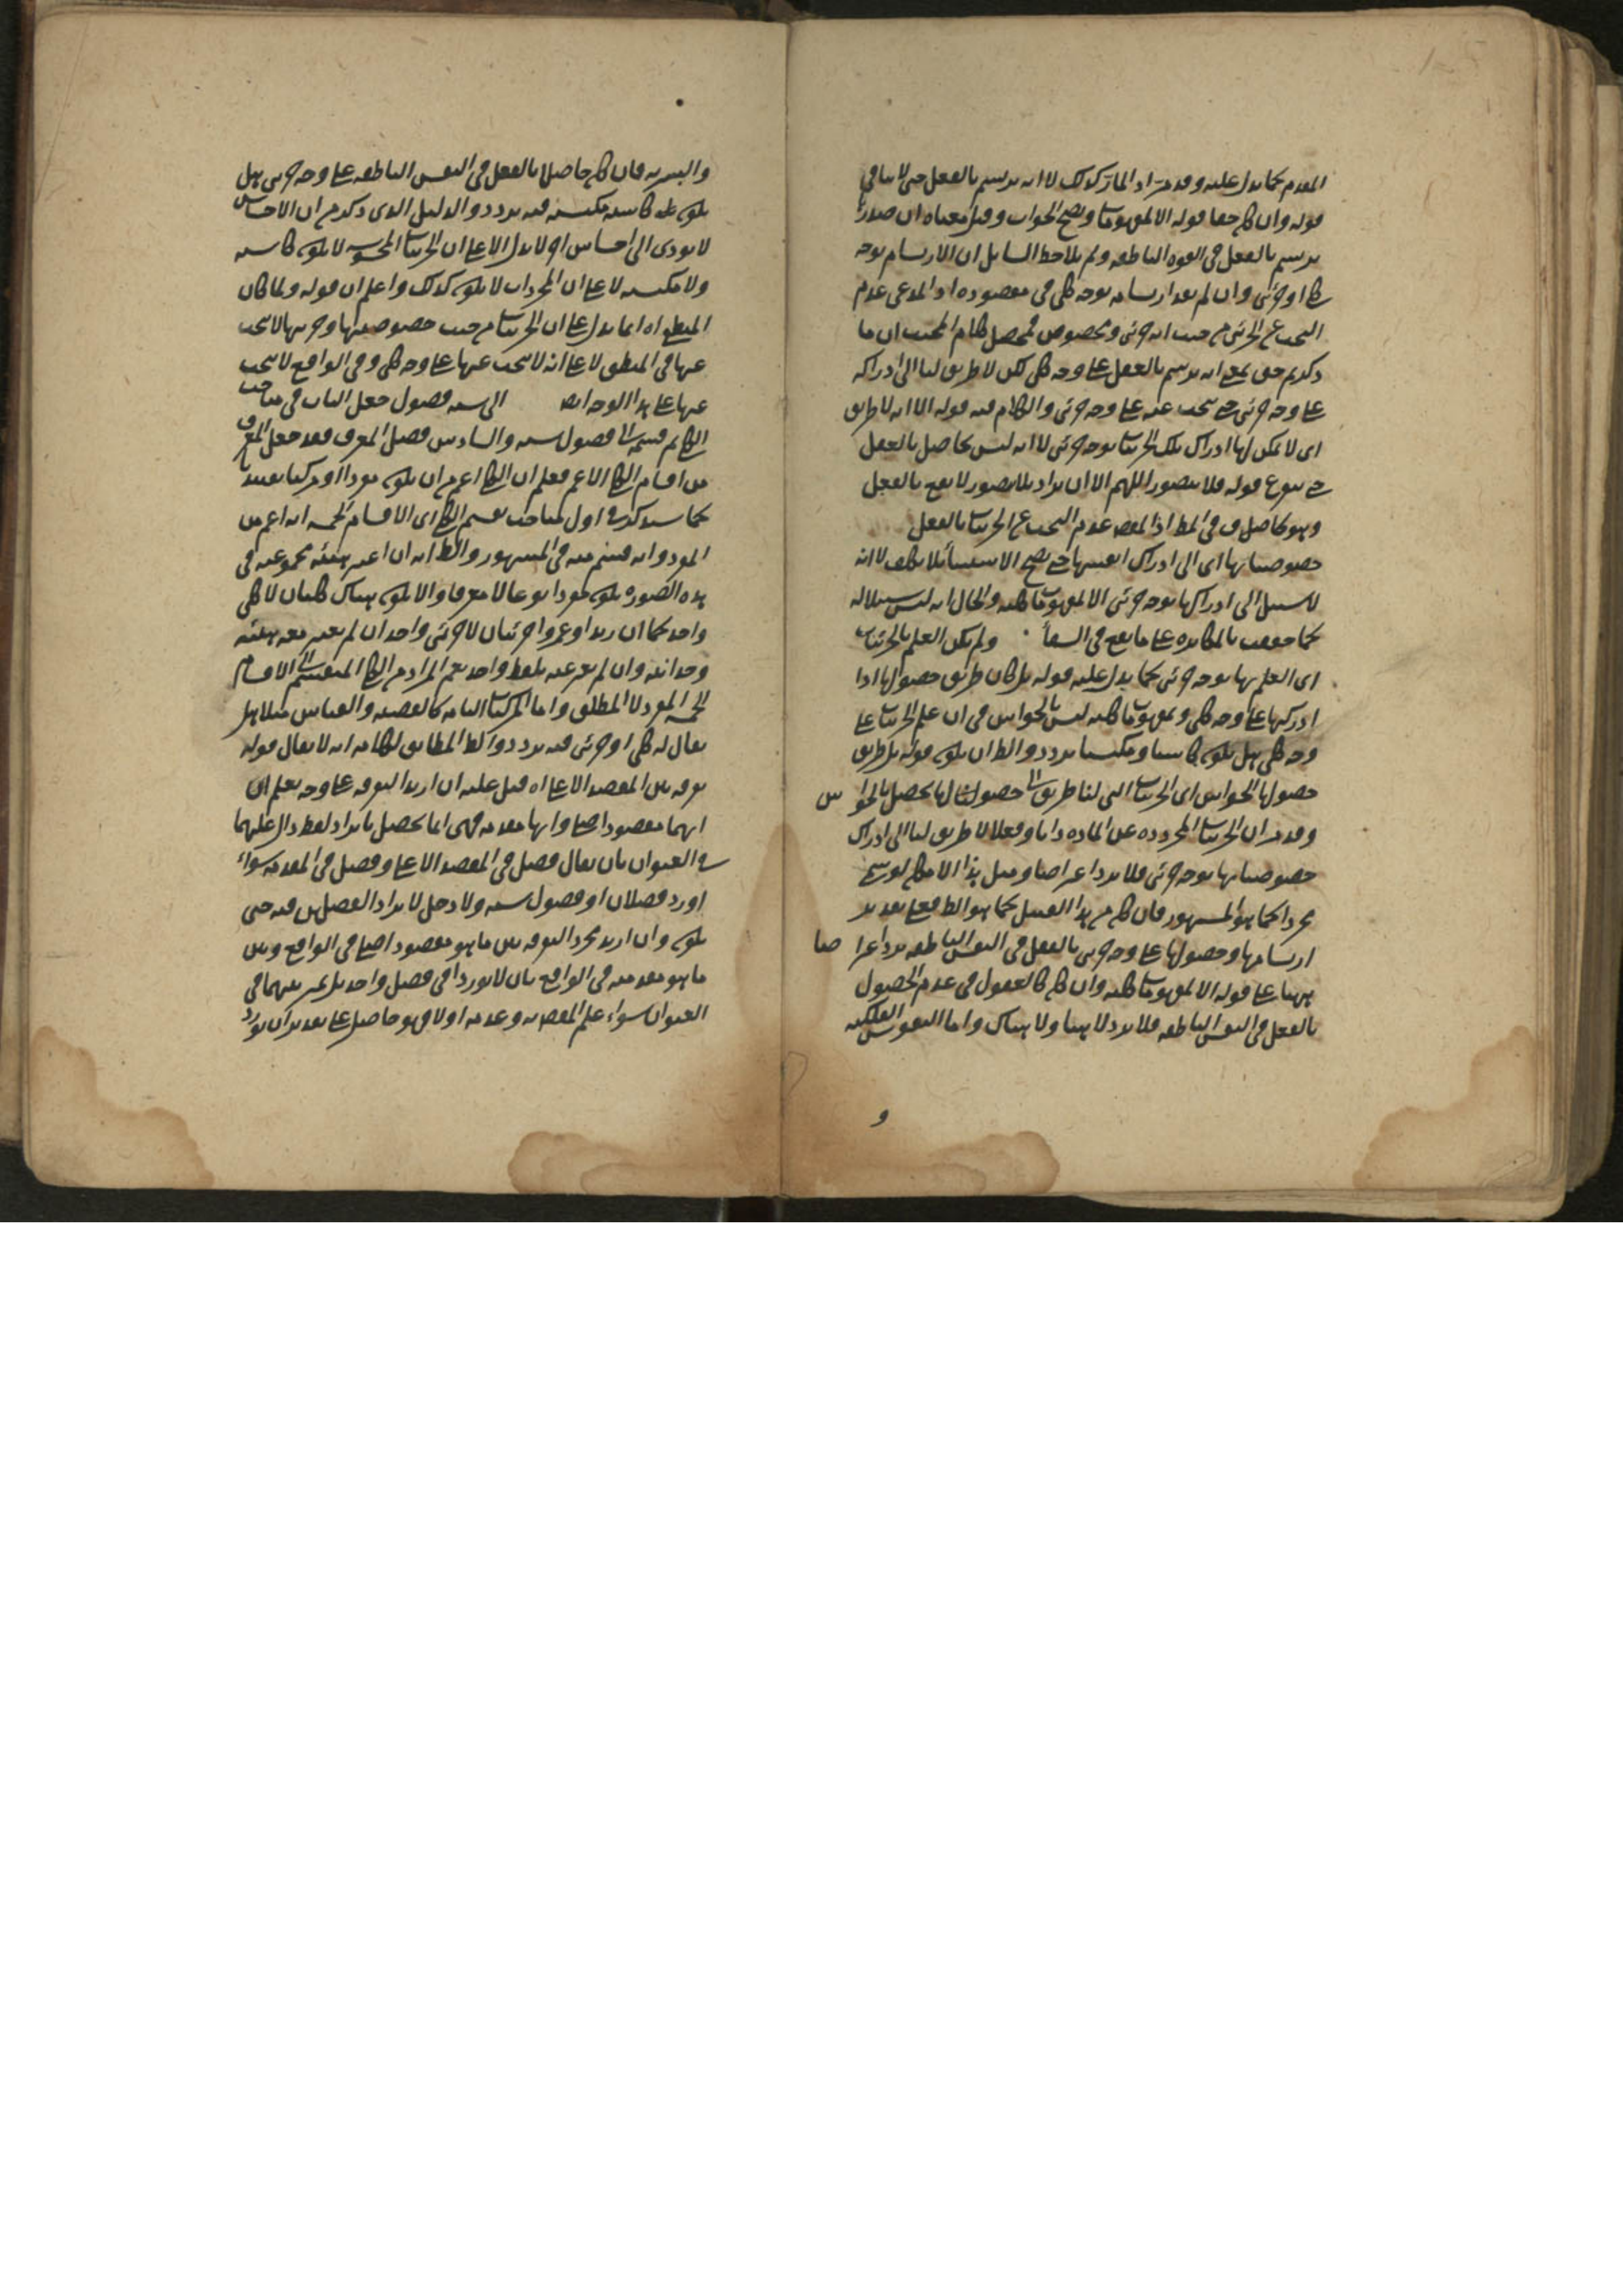 المقدم كما يدل عليه وقد مر اذ المار كذلك لا انه يرتسم بالفعل حتى لا ينافي
قوله وان كان حقا قوله الا بمفهومات ويصح الجواب وقيل معناه ان صدرا
يرتسم بالفعل في القوة الناطقة ولم يلاحظ السائل ان الارتسام بوجه
كلي او جزئي وان لم يفد ارتسامه بوجه كلي في مقصوده اذ المدعى عدم
البحث عن الجزئي من حيث انه جزئي ومخصوص فمحصل كلام المجيب ان ما
ذكرتم حق بمعنى انه يرتسم بالفعل على وجه كلي لكن لا طريق لنا الى ادراكه
على وجه جزئي حتى يبحث عنه على وجه جزئي والكلام فيه قوله الا انه لا طريق
اي لا يمكن لها ادراك تلك الجزئيات بوجه جزئي لا انه ليس بحاصل بالفعل
حتى قوله فلا يتصور اللهم الا ان يراد بلا يتصور لا يقع بالفعل
وهو كاصل في المط اذ المقصد عدم البحث عن الجزئيات بالفعل
خصوصياتها اي الى ادراك انفسها حتى يصح الاستثناء بلا تكلف لا انه
لا سبيل الى ادراكها بوجه جزئي الا بمفهومات كلية والحال انه ليس سبيلا له
كما حققت بالمكابرة على ما يقع في الشفا ولم يكن العلم بالجزئيات
اي العلم بها بوجه جزئي كما يدل عليه قوله بل كان طريق حصولها اذا
ادركها على وجه كلي وبمفهومات كلية ليس بالحواس في ان علم الجزئيات على
وجه كلي هل يكون كاسبا ومكتسبا تردد والظ ان يكون قوله بل طريق
حصولها الحواس اي الجزئيات التي لنا طريق الى حصولها يحصل بالحواس
وقد مر ان الجزئيات المجردة عن المادة ذاتا وفعلا لا طريق لنا الى ادراك
خصوصياتها بوجه جزئي فلا يرد اعتراضا وقيل هذا الامكان لو سمي
مجردا كما هو المشهور فان كان من هذا القبيل كما هو الظ فعلى تقدير
ارتسامها وحصولها على وجه جزئي بالفعل في النفس الناطقة يرد اعتراضا
ههنا على قوله الا بمفهومات كلية وان كان كالعقول في عدم الحصول
بالفعل في النفس الناطقة فلا يرد لا هنا ولا هناك واما النفوس الفلكية
و
والبشرية فان كان حاصلا بالفعل في النفس الناطقة على وجه جزئي هل
يكون كاسبة مكتسبة فيه تردد والدليل الذي ذكر من ان الاحساس
لا يودي الى احساس اخر لا يدل الا على ان الجزئيات المحسوسة لا يكون كاسبة
ولا مكتسبة لا على ان المجردات لا يكون كذلك واعلم ان قوله ولما كان
المنطقي اه انما يدل على ان الجزئيات من حيث خصوصيتها وجزئيتها لا يبحث
عنها في المنطق لا على انه لا يبحث عنها على وجه كلي وفي الواقع لا يبحث
عنها على هذا الوجه ايضا الى ستة فصول جعل الباب في مباحث
الكلي ثم قسمه الى فصول ستة والسادس فصل المعرف فقد جعل المعرف
من اقسام الكلي الاعم فعلم ان الكلي اعم من ان يكون مفردا او مركبا تقييديا
كما سيذكره في اول مباحث تقسيم الكلي الى الاقسام الخمسة انه اعم من
المفرد وانه قسم منه في المشهور والظ انه ان اعتبر هيئة مجموعية في
هذه الصورة يكون مفردا نوعا لا معرفا والا يكون هناك كليان لا كلي
واحد كما ان زيدا وعمروا جزئيان لا جزئي واحد ان لم يعتبر معه هيئة
وحدانية وان لم يعبر عنه بلفظ واحد نعم المراد من الكلي المنقسم الى الاقسام
الخمسة المفرد لا المطلق واما المركبات التامة كالقضية والقياس مثلا هل
يقال له كلي او جزئي فيه تردد والظ المطابق لكلامه انه لا يقال قوله
توفرقة بين المقصد الاعلى اه قيل عليه ان اريد التفرقة على وجه يعلم ان
انهما مقصودا اصليا وانها مقدمة فهي انما يحصل بايراد لفظ دال عليهما
في العنوان بان يقال فصل في المقصد الاعلى وفصل في المقدمة سواء
اورد فصلان او فصول ستة ولا دخل لايراد الفصلين فيه حتى
يكون وان اريد مجرد التفرقة بين ما هو مقصود اصلي في الواقع وبين
ما هو مقدمة في الواقع بان لا يوردا في فصل واحد بل يميز بينهما في
العنوان سواء علم المقصدية وعدمه او لا فهو حاصل على تقدير ان يورد